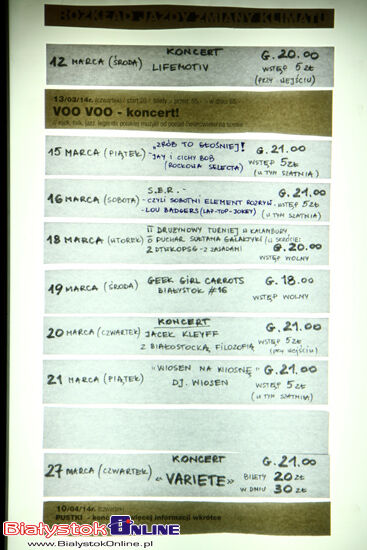 ROZKŁAD JAZDY ZMIANY KLIMATU
12 MARCA (ŚRODA) KONCERT G. 20.00
LIFEMOTIV WSTĘP 5 ZŁ
(PRZY WEJŚCIU)
13/03/14r. (czwartek) / start 20 / bilety - przed 55,- - w dniu 65,-
VOO VOO - koncert!
rock, folk, jazz, legenda polskiej muzyki od ponad ćwierćwiecza na scenie
15 MARCA (PIĄTEK) - „ZRÓB TO GŁOŚNIEJ!” G. 21.00
- JAY I CICHY BOB WSTĘP 5 ZŁ
(ROCKOWA SELECTA) (W TYM SZATNIA)
16 MARCA (SOBOTA) S.B.R. - G. 21.00
- CZYLI SOBOTNI ELEMENT ROZRYW. WSTĘP 5 ZŁ
- LOU BADGERS (LAP-TOP-JOKEY) (W TYM SZATNIA)
18 MARCA (WTOREK) II DRUŻYNOWY TURNIEJ W KALAMBURY
O PUCHAR SUŁTANA GALAKTYKI (W SKRÓCIE:
2 DTWKOPSG - Z ZASADAMI G. 20.00
WSTĘP WOLNY
19 MARCA (ŚRODA) GEEK GIRL CARROTS G. 18.00
BIAŁYSTOK #16 WSTĘP WOLNY
KONCERT G. 21.00
20 MARCA (CZWARTEK) JACEK KLEYFF WSTĘP 5 ZŁ
Z BIAŁOSTOCKĄ FILOZOFIĄ (PRZY WEJŚCIU)
21 MARCA (PIĄTEK) "WIOSEN NA WIOSNĘ" G. 21.00
DJ. WIOSEN WSTĘP 5 ZŁ
(W TYM SZATNIA)
KONCERT G. 21.00
27 MARCA (CZWARTEK) « VARIETE » BILETY 20 ZŁ
W DNIU 30 ZŁ
10/04/14r. (czwartek)
PUSTKI - koncert więcej informacji wkrótce
Białystok ONLINE
www.BialystokOnline.pl